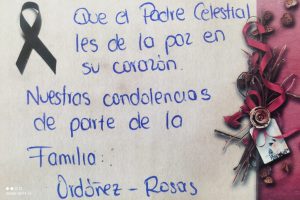 Que el Padre Celestial
les de la paz en
su corazón.
Nuestras condolencias
de parte de la
Familia:
Ordóñez - Rosas